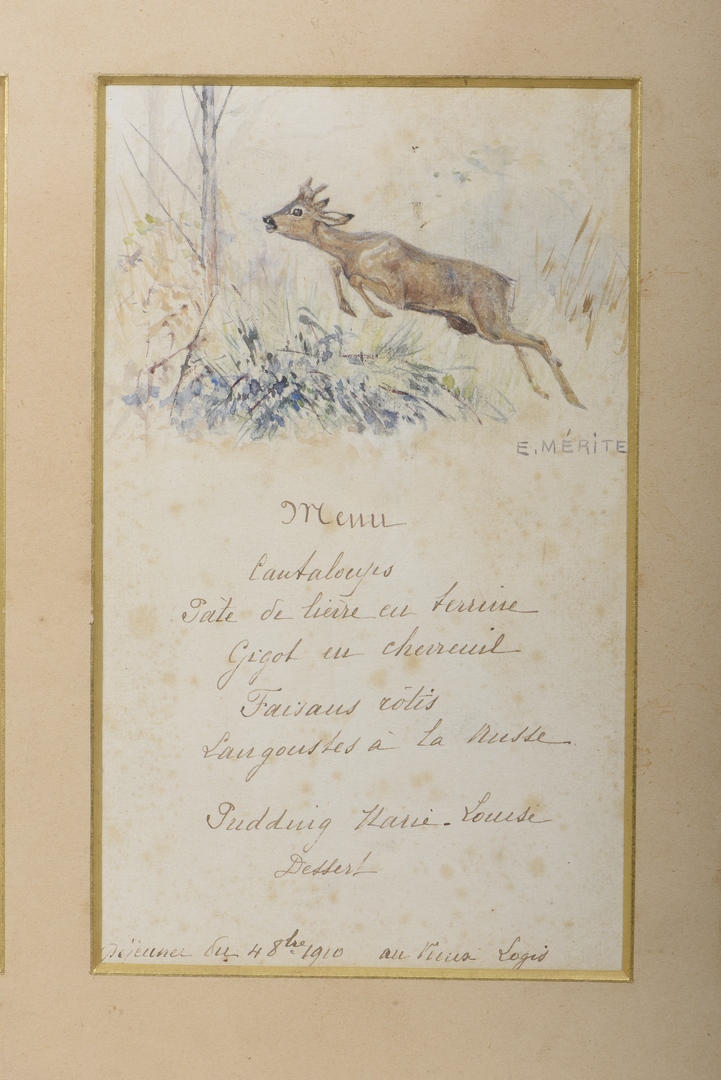 E. MÉRITE
Menu
Cantaloups
Pâté de lièvre en terrine
Gigot en chevreuil
Faisans rôtis
Langoustes à la Russe
Pudding Marie-Louise
Dessert
Déjeuner du 4 8bre 1910 au Vieux Logis